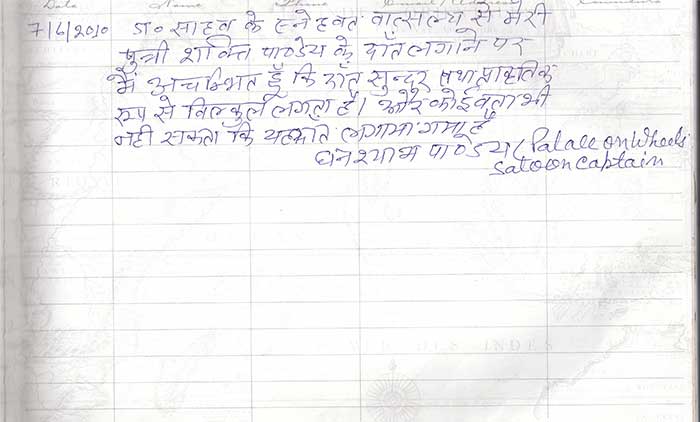 Date Name Phone Email / Address Comments
7/6/2010 डा० साहब के स्नेहवत वात्सल्य से मेरी
पुत्री शक्ति पाण्डेय के दाँत लगाने पर
मैं अचम्भित हूँ कि दाँत सुन्दर तथा प्राकृतिक
रूप से बिल्कुल लगता है। और कोई बता भी
नही सकता कि यह दाँत लगाया गया है
घनश्याम पाण्डेय (Palace on Wheels
Saloon Captain
DES INDES